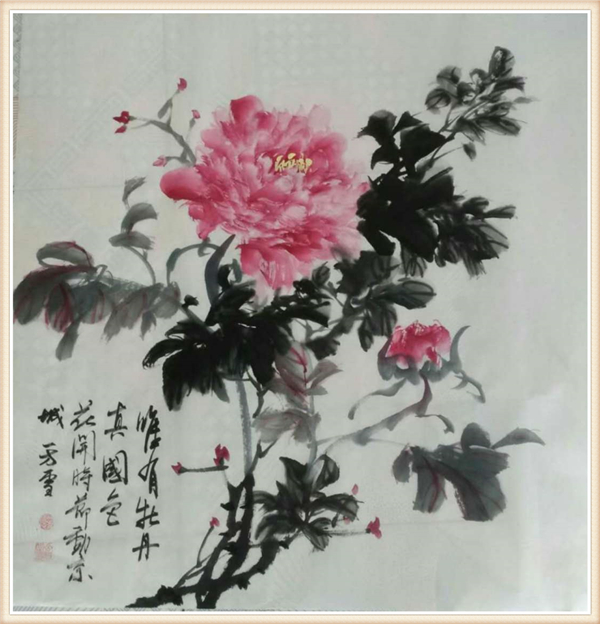 唯有牡丹
真國色
花開時節動京
城 芳雪